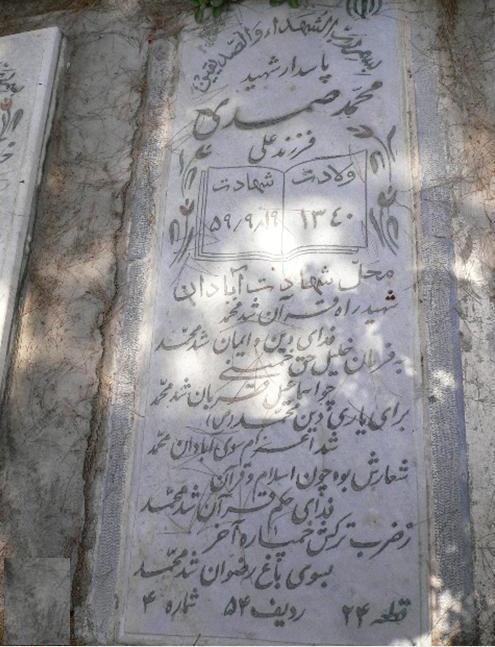 بسم رب الشهداء والصدیقین
پاسدار شهید
محمد صمدی
فرزند علی
ولادت شهادت
۱۳٤۰ ۵۹/۹/۱۹
محل شهادت آبادان
شهید راه قرآن شد محمد
فدای دین و ایمان شد محمد
بفرمان خلیل حق خمینی
چو اسماعیل قربان شد محمد
برای یاری دین محمد (ص)
شد اعزام سوی آبادان محمد
شعارش بود چون اسلام و قرآن
فدای حکم قرآن شد محمد
ز ضرب ترکش خمپاره آخر
بسوی باغ رضوان شد محمد
قطعه ۲۴ ردیف ۵۴ شماره ۴